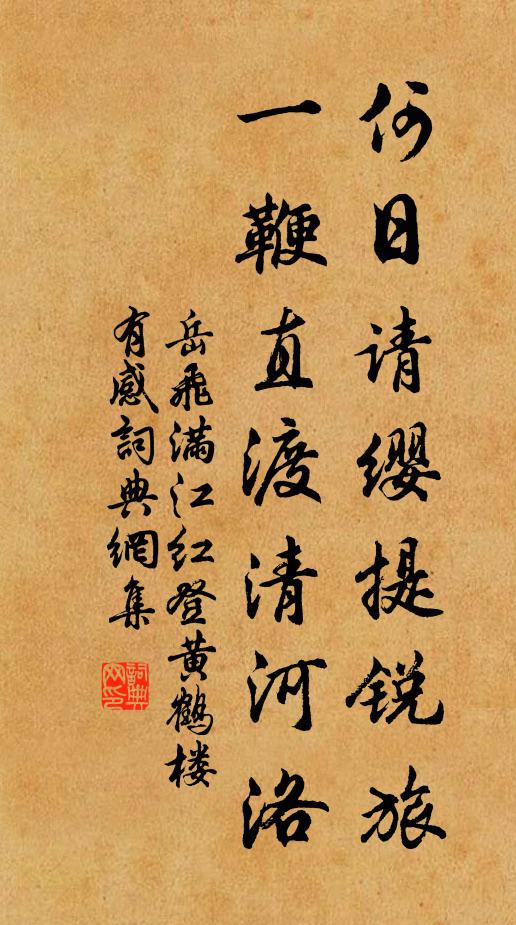 何日请缨提锐旅
一鞭直渡清河洛
岳飛满江红登黄鹤楼
有感詞典網集
詞典网印